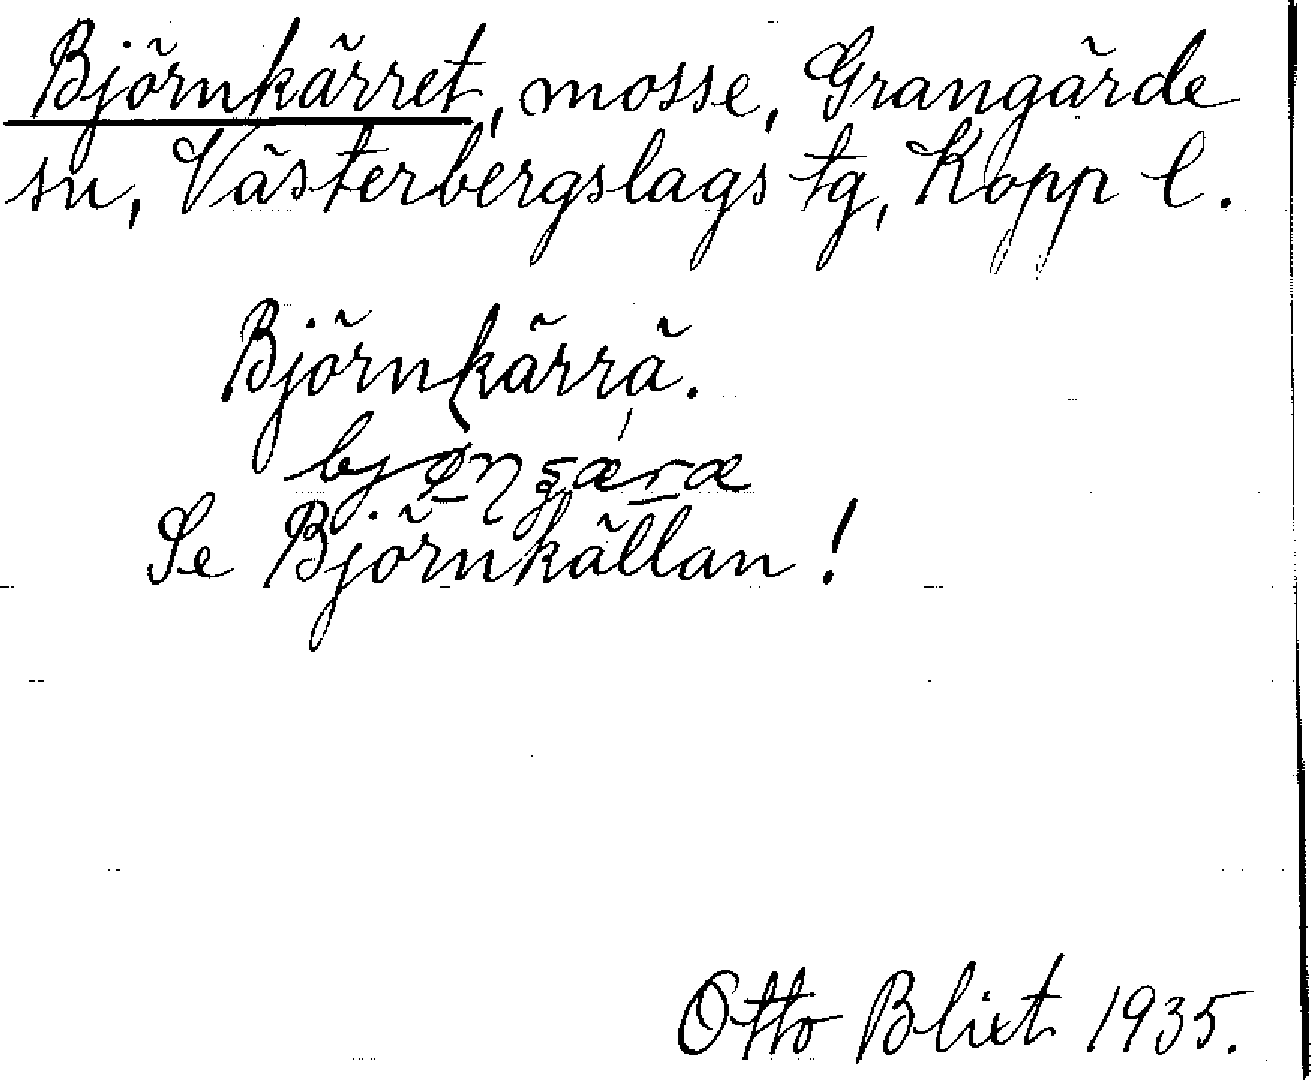 Björnkärret, mosse, Grangärde
sn, Västerbergslags tg, Kopp l.
Björnkärrä.
Se Björnkällan!
Otto Blixt 1935.